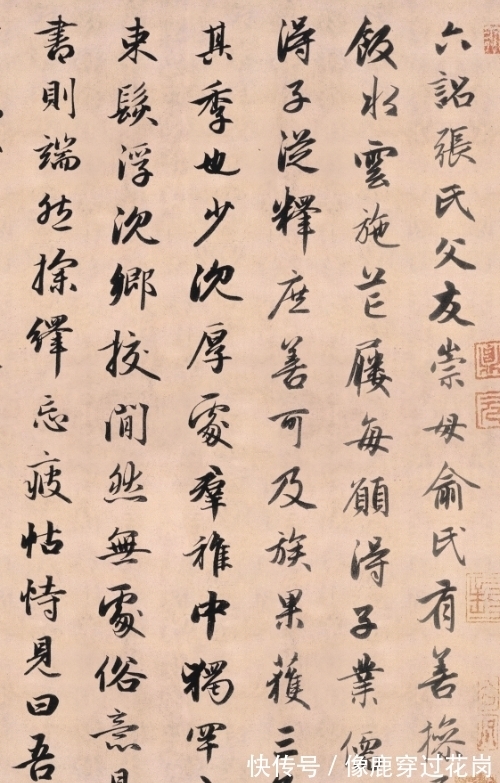 六詔張氏父友崇母俞氏有善操
飯水雲施芒屨每願得子業儒
得子從釋庶善可及族果獲三
其季也少沈厚處羣稚中獨罕
束髮浮沈鄉校閒然無處俗意
書則端然探繹忘疲怙恃見曰吾
快传号 / 像鹿穿过花岗